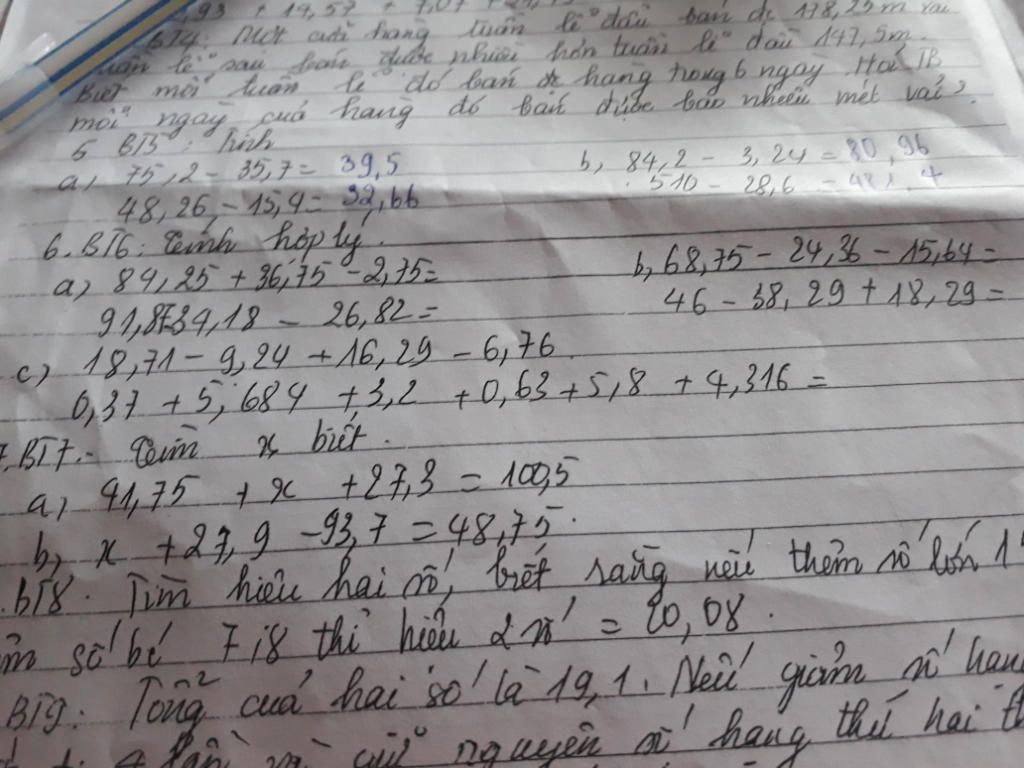 ,93 + 19,57 + 7,07 +
BT4: Một cửa hàng tuần lễ đầu bán đc 178,25m vải
tuần lễ sau bán được nhiều hơn tuần lễ đầu 147,5m.
Biết mỗi tuần lễ đó bán đc hàng trong 6 ngay. Hỏi TB
mỗi ngày cửa hàng đó bán được bao nhiêu mét vải?
5 BT5: Tính
a, 75,2 - 35,7 = 39,5 b, 84,2 - 3,24 = 80,96
48,26 - 15,4 = 32,66 510 - 28,6 = 481,4
6. BT6: Tính hợp lý.
a) 84,25 + 36,75 - 2,75 = b, 68,75 - 24,36 - 15,64 =
91,87-34,18 - 26,82 = 46 - 38,29 + 18,29 =
c) 18,71 - 9,24 + 16,29 - 6,76
0,37 + 5,684 + 3,2 + 0,63 + 5,8 + 4,316 =
7. BT7.- Tìm x biết.
a, 41,75 + x + 27,3 = 100,5
b, x + 27,9 - 93,7 = 48,75.
BT8. Tìm hiệu hai số, biết rằng nếu thêm số lớn 1
số bé 7,8 thì hiệu 2 số = 20,08.
BT9: Tổng của hai số là 19,1. Nếu giảm số hạng
4 lần và giữ nguyên số hạng thứ hai th